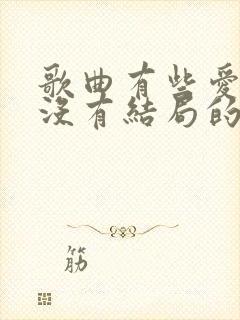 歌曲有些愛
沒有結局的
筋